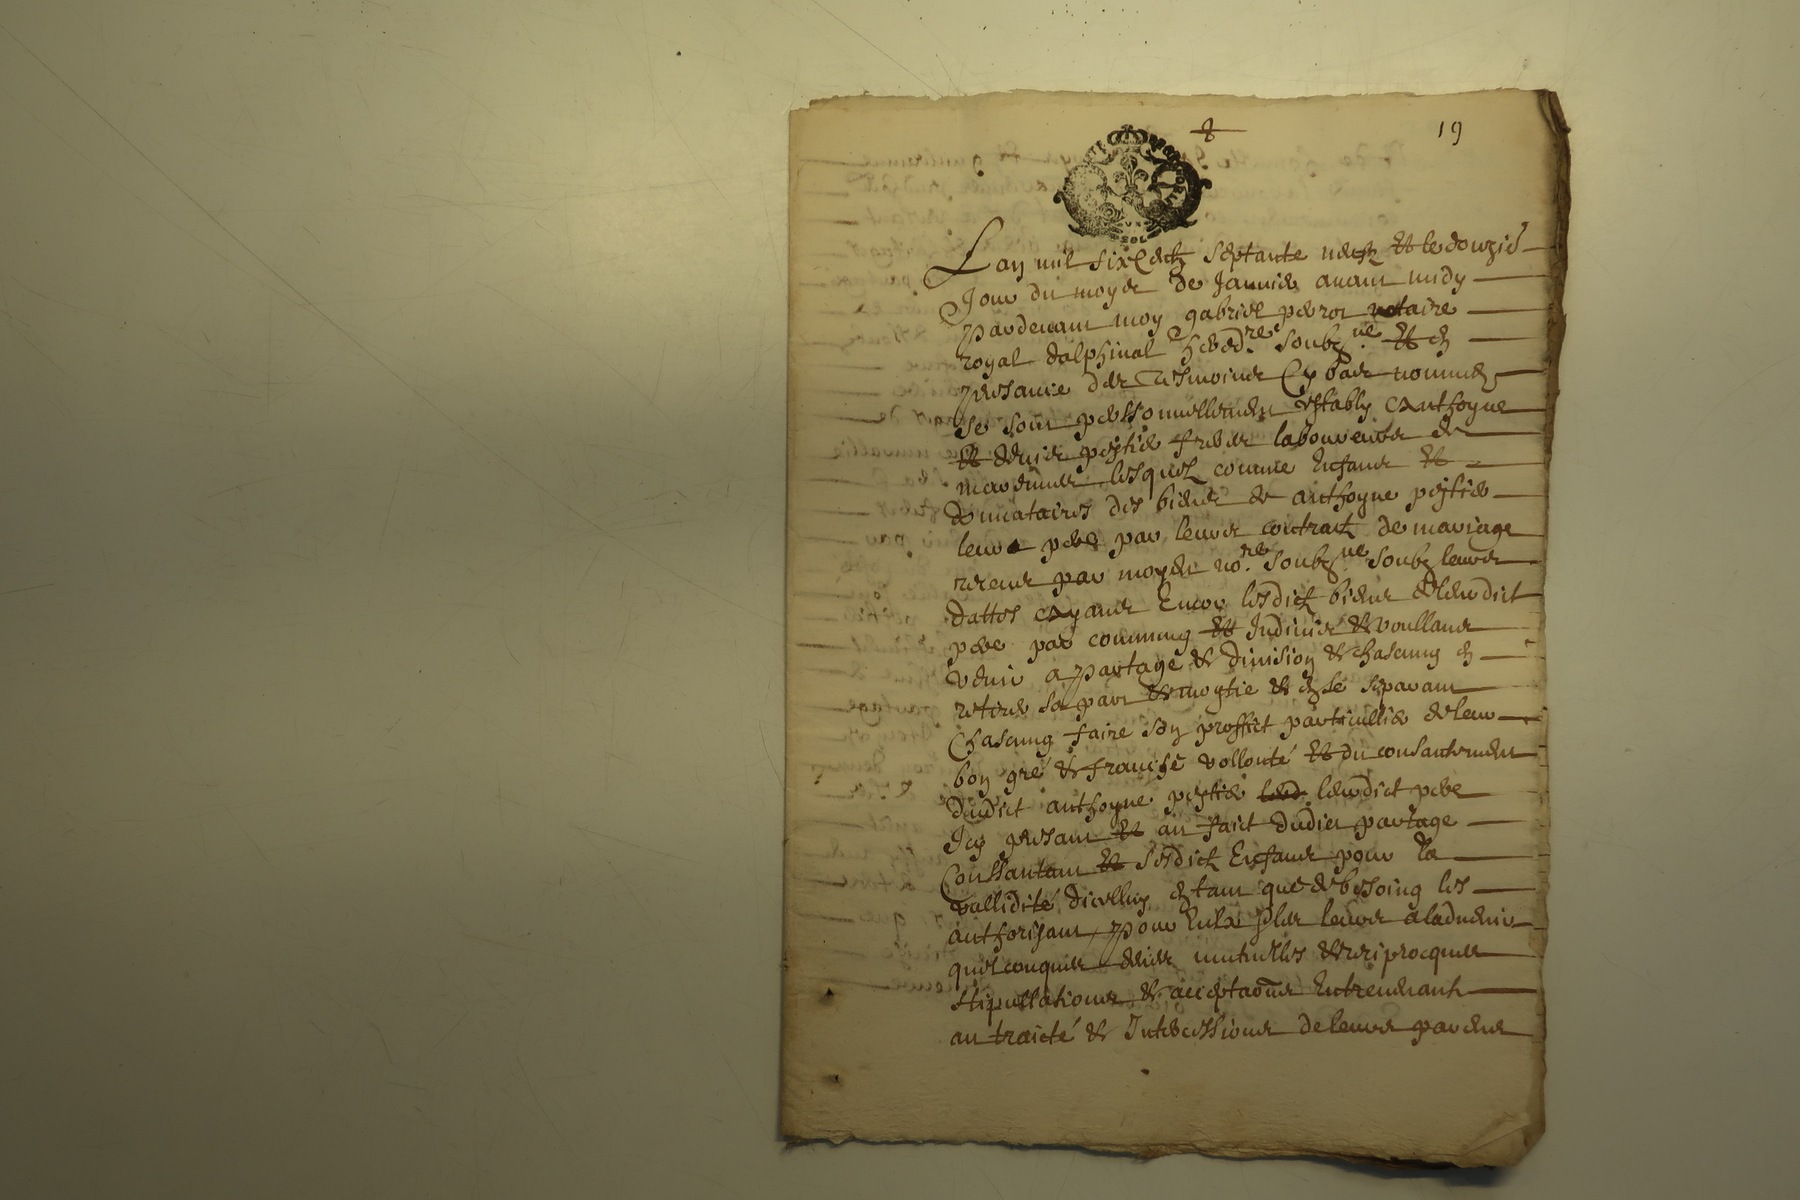 19
Lan mil six Centz septante neufz et le douzie
Jour du moys de Janvier avant midy
pardevant moy gabriel perrot notaire
royal dalphinal hered.re soubz.ne et en
presance des tesmoins Cy bas nommes
se sont personnellement establys anthoyne
et frères laboureurs de
lesquels comme Enfans et
donnataires des biens de anthoyne
leur pere par leurs contraitz de mariage
receus par moydit no.re soubz.ne soubz leurs
dattes ayans Encor lesdictz biens de leurdict
pere par commung et Indivis et voullans
venir a partage et division et chascung en
retirer sa part et moytie et en se separant
Chascung faire son proffict particullier de leur
bon gré et franche vollonté et du consantement
dudict anthoyne leurdict pere
Icy presant et au faict dudict partage
Consantant et sesdictz Enfans pour la
vallidité dicelluy en tant que de besoing les
authorisant pour Eulx et les leurs a ladvenir
quelconques avec mutuelles et reciprocques
stipullations et acceptaons Entrevenant
au traicté et Intercessions de leurs parens